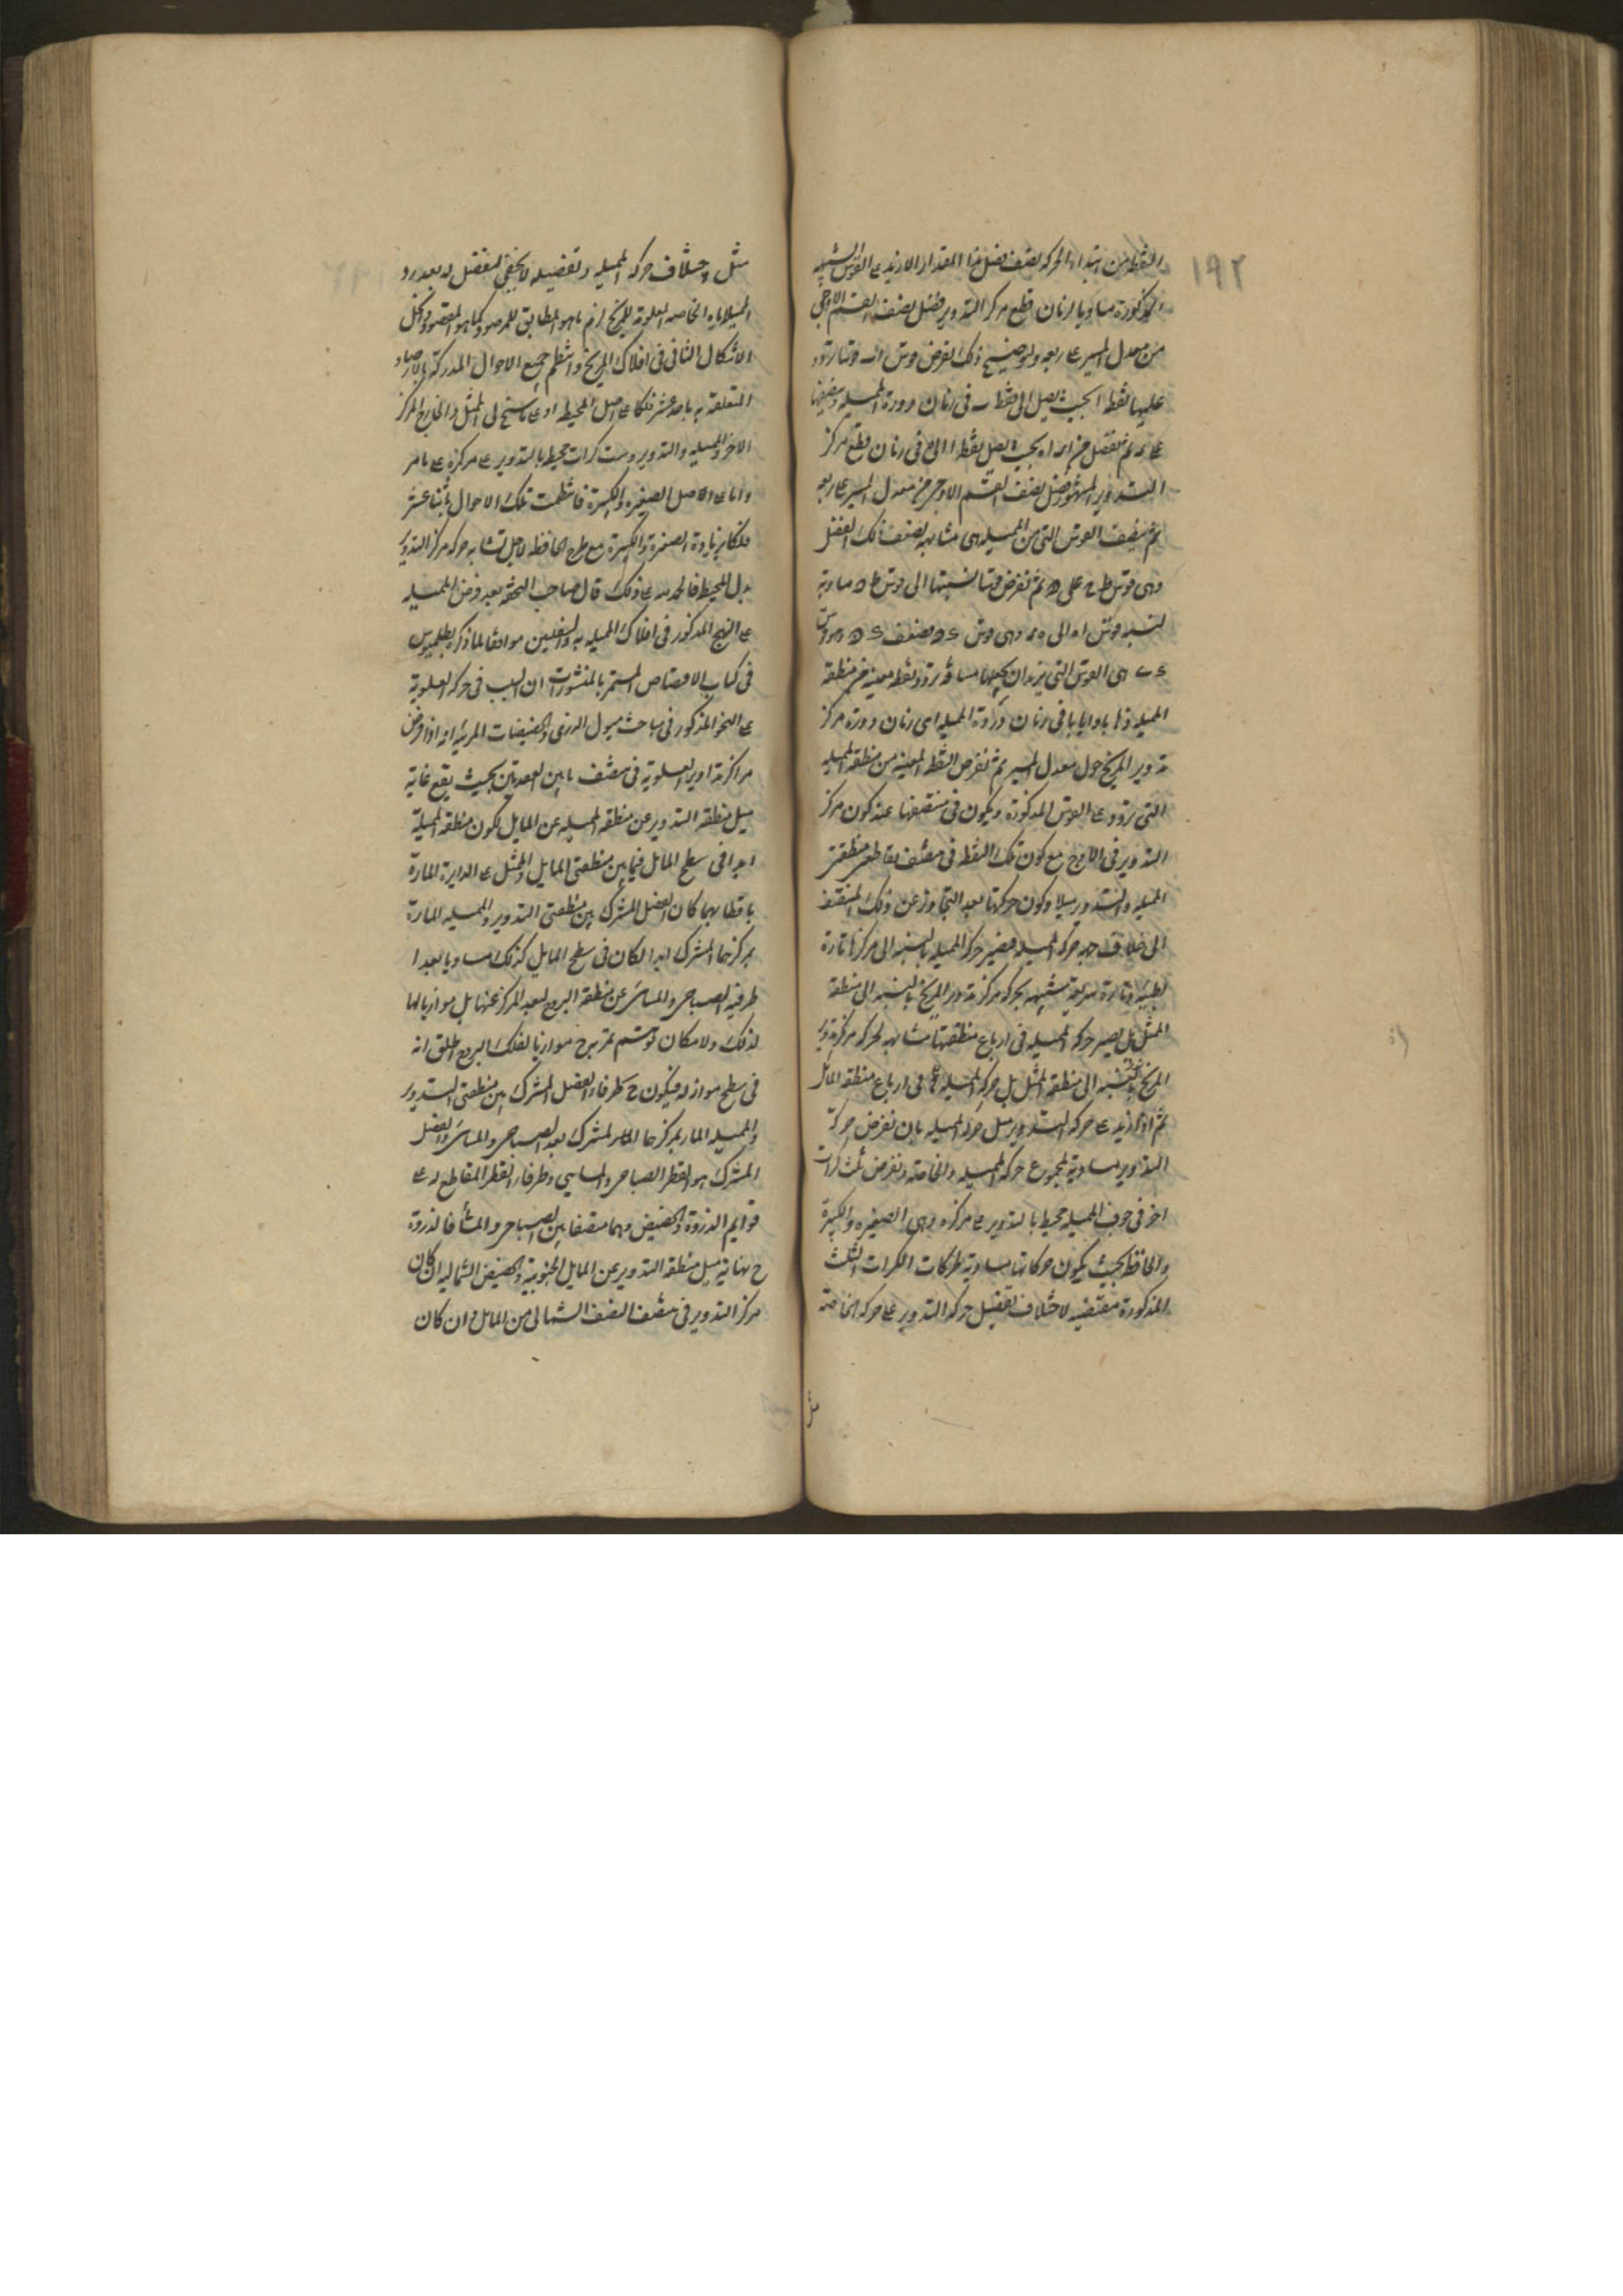 ١٩٢
النقطة من ابتداء الحركة نصف فضل هذا المقدار الازيد على القوس الشبيهة
المذكورة مساويا لزمان قطع مركز التدوير فضل نصف القسم الاوجى
من معدل المسير على ربعه ولتوضيح ذلك لنفرض قوس اب وترا تردد
عليها نقطة ا بحيث يصل الى نقطة ب فى زمان دورة المميلة
ثم نفصل من اب اه بحيث يصل نقطة ا الى ه فى زمان قطع مركز
التدوير المشهور فضل نصف القسم الاوجى من معدل المسير على ربعه
ثم نضيف القوس التى من المميلة هى مشابهة لنصف ذلك الفضل
وهى قوس ط ح على ه ثم نفرض قوسا نسبتها الى قوس ط ه مساوية
لنسبة قوس اه الى
هى القوس التى نريد ان نجعلها مسافة تردد نقطة معينة من منطقة
المميلة ذهابا وايابا فى زمان دورة المميلة اى زمان دورة مركز
تدوير المريخ حول معدل المسير ثم نفرض النقطة المعينة من منطقة المميلة
التى تردد على القوس المذكورة ويكون فى منتصفها عند كون مركز
التدوير فى الاوج مع كون تلك النقطة فى منتصف تقاطعى منطقتى
المميلة والتدوير ميلا وكون حركتها بعد التجاوز عن ذلك المنتصف
الى خلاف جهة حركة المميلة فيصير حركة المميلة بالنسبة الى مركزها تارة
بطيئة وتارة سريعة شبيهة بحركة مركز تدوير المريخ بالنسبة الى منطقة
الممثل بل يصير حركة المميلة فى ارباع منطقتها مشابهة لحركة مركز تدوير
المريخ بالنسبة الى منطقة الممثل بل حركة المميلة فى ارباع منطقة المائل
ثم اذا زيد على حركة التدوير مثل حركة المميلة بان نفرض حركة
التدوير مساوية لمجموع حركة المميلة والخاصة ونفرض ثلث كرات
اخر فى جوف المميلة محيط بالتدوير على مركزه وهى الصغيرة والكبيرة
والحافظة بحيث يكون حركاتها مساوية لحركات الكرات الثلث
المذكورة مقتضية لاختلاف تفضيل حركة التدوير على حركة الخاصة
مثل
مثل اختلاف حركة المميلة وتفصيله لا يخفى لمفضل له بعد رد
المميلة اياه الخاصة المعلومة للمريخ لزم ما هو المطابق للمرصود كما هو المقصود
الاشكال الثانى فى افلاك المريخ وانتظم جميع الاحوال المدركة بالارصاد
المتعلقة به باحد عشر فلكا على اصل المحيط او على ما سنح لى الممثل والخارج المركز
الاخر والمميلة والتدوير وست كرات محيطة بالتدوير على مركزه على ما مر
واما على الاصل الصغيرة والكبيرة فانتظمت تلك الاحوال باثنا عشر
فلكا بزيادة الصغيرة والكبيرة مع طرح الحافظة لاجل تشابه حركة مركز التدوير
بدل المحيط فالحمد لله على ذلك قال صاحب التحفة بعد فرض المميلة
على النهج المذكور فى افلاك المميلة به والسفليين موافقا لما ذكره بطلميوس
فى كتاب الاقتصاص المستمر بالمنشورات ان السبب فى حركة العلوية
على النحو المذكور فى مباحث ميول الذرى والحضيضات المرئية انه اذا فرض
مراكز تداوير العلوية فى منتصف ما بين العقدتين بحيث يقع غاية
ميل منطقة التدوير عن منطقة المميلة عن المايل لكون منطقة المميلة
ابدا فى سطح المائل فيما بين منطقتى المايل والممثل على الدايرة المارة
باقطابهما كان الفصل المشترك بين منطقتى التدوير والمميلة المارة
بمركزهما المشترك ابدا لكان فى سطح المايل كذلك مساويا بعدا
طرفيه الصباحى والمسائى عن منطقة البروج لبعد المركز عنها بل موازيا لها
لذلك ولا مكان توسم مدرج موازيا لفلك البروج اطلق انه
فى سطح مواز له فيكون ح طرفا الفصل المشترك بين منطقتى التدوير
والمميلة المار بمركزهما المشترك بعد الصباحى والمسائى والفصل
المشترك هو القطر الصباحى والمسايى وطرفا القطر المقاطع له على
قوايم الذروة والحضيض وهما منتصفا بين الصباحى والمسا فالذروة
ح نهاية ميل منطقة التدوير عن المايل الجنوبية والحضيض الشمالية ان كان
مركز التدوير فى منتصف النصف الشمالى من المايل وان كان